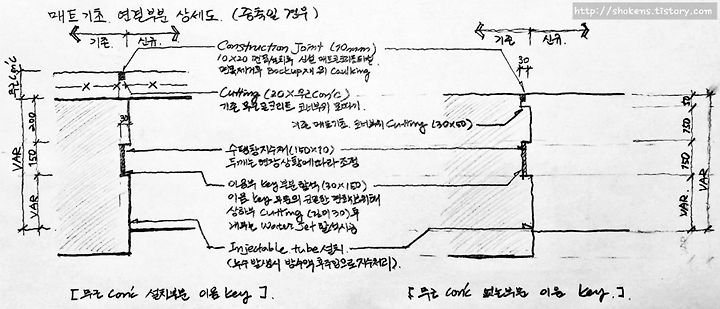 매트기초. 연결부분 상세도. (증축일 경우)
http://shokens.tistory.com
기존. 신규.
기존. 신규.
Construction Joint (10mm)
10×20
면목제거후 Backup재 위 Caulking
Cutting (20×무근Con'c)
기존 무근콘크리트
기존 매트기초. 모서리부위 Cutting (30×50)
수팽창지수재 (150×10)
두께는 현장상황에따라 조정
이음부 Key부분 할석 (30×150)
이음 Key 부분의
상하부 Cutting (깊이30) 후
Water Jet 할석시공
Injectable tube 설치.
(누수 발생시 방수액 후주입으로 지수처리).
무근Con'c
200
150
VAR
VAR
30
30
50
150
150
VAR
VAR
[무근 Con'c 설치부분 이음 Key].
[무근 Con'c 없는부분 이음 Key.]